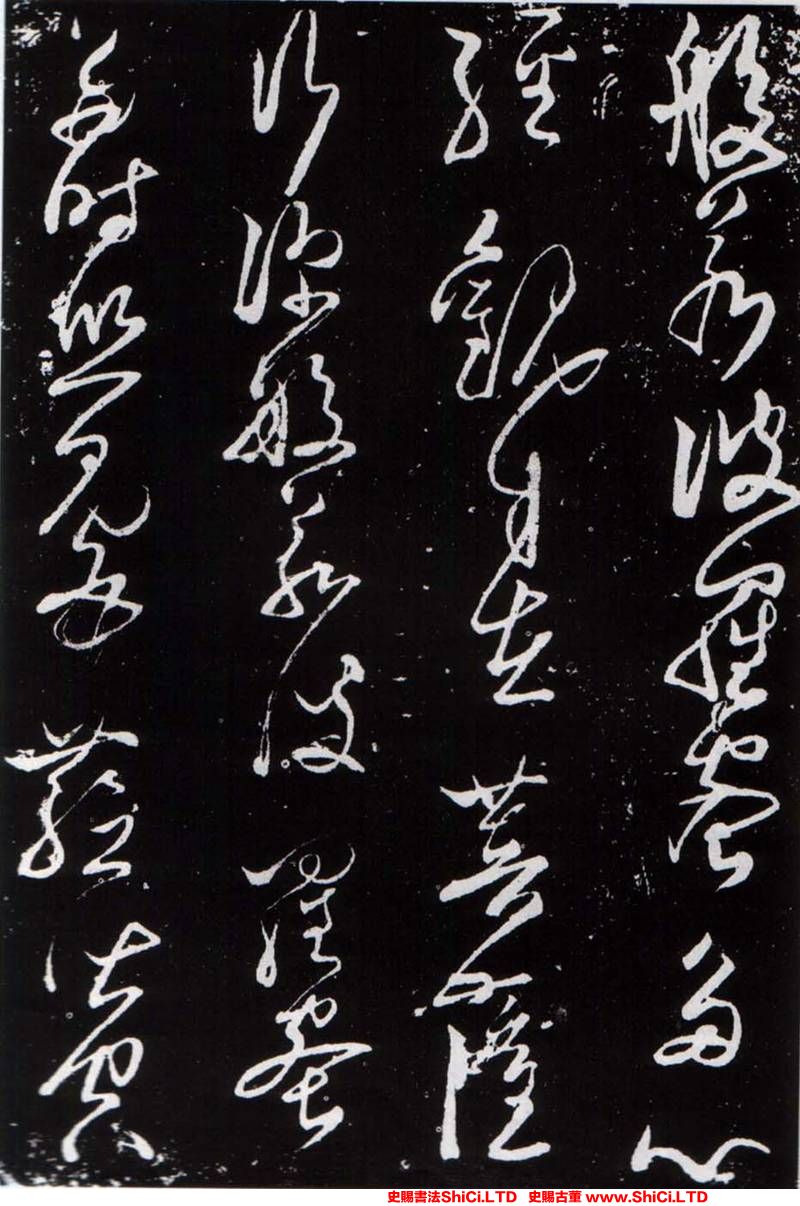 般若波羅蜜多心
經觀自在菩薩
行深般若波羅蜜
多時照見五蘊皆空
史賜書法ShiCi.LTD 史賜古董 www.ShiCi.LTD